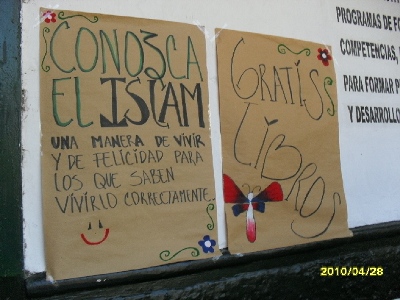 CONOZCA
EL ISLAM
UNA MANERA DE VIVIR
Y DE FELICIDAD PARA
LOS QUE SABEN
VIVIRLO CORRECTAMENTE
GRATIS
LIBROS
PROGRAMAS DE FO
COMPETENCIAS,
PARA FORMAR P
Y DESARROLLO
2010/04/28